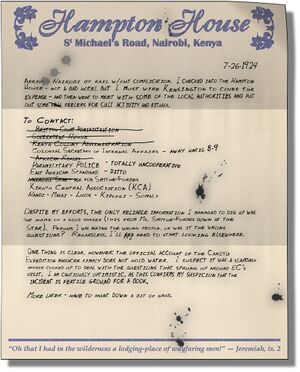 Hampton House
St Michael's Road, Nairobi, Kenya
7-26-1924
Arrived Nairobi by rail w/out complication. I checked into the Hampton
House - not a bad hotel but I must wire Kensington to cover the
expense - and then went to meet with some of the local authorities and put
out some feelers for cult activity and rituals.
To Contact:
British Court Administration
Kenya Colony Administration
Colonial Secretary of Internal Affairs - away until 8-9
African Rifles
Paramilitary Police - totally uncooperative
East African Standard - ditto
Nairobi Star for Smythe-Forbes
Kikuyu Central Association (KCA)
Nandi - Masai - Luo - Kipsigi - Somali
Despite my efforts, the only reliable information I managed to dig up was
the name of a good barber (this from Ms. Smythe-Forbes down at the
Star). Perhaps I was asking the wrong people, or was it the wrong
questions? Regardless, I'll need to start looking elsewhere.
One thing is clear, however: the official account of the Carlyle
Expedition massacre simply does not hold water. I suspect it was a
affair cooked up to deal with the questions that sprung up around EC's
visit. I am cautiously optimistic, as this confirms my suspicion that the
incident is fertile ground for a book.
More later - have to hunt down a bit of grub.
"Oh that I had in the wilderness a lodging-place of wayfaring men!" — Jeremiah, ix. 2